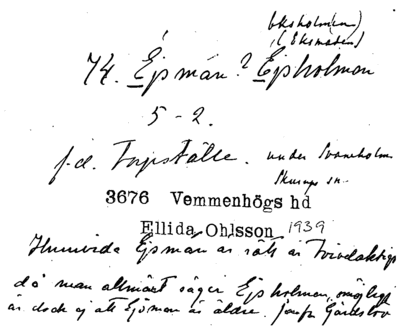 (Eksholmen)
(Eksmaden)
74. Ejsmån? Ejsholmen
5-2.
f.d. Torpställe. under Svaneholm
Skurups sn.
3676 Vemmenhögs hd
Ellida Ohlsson 1939
Huruvida Ejsmån är rätt är tvivelaktigt
då man allmänt säger Ejsholmen, möjligt
är dock ej att Ejsmån är äldre. Jemf.